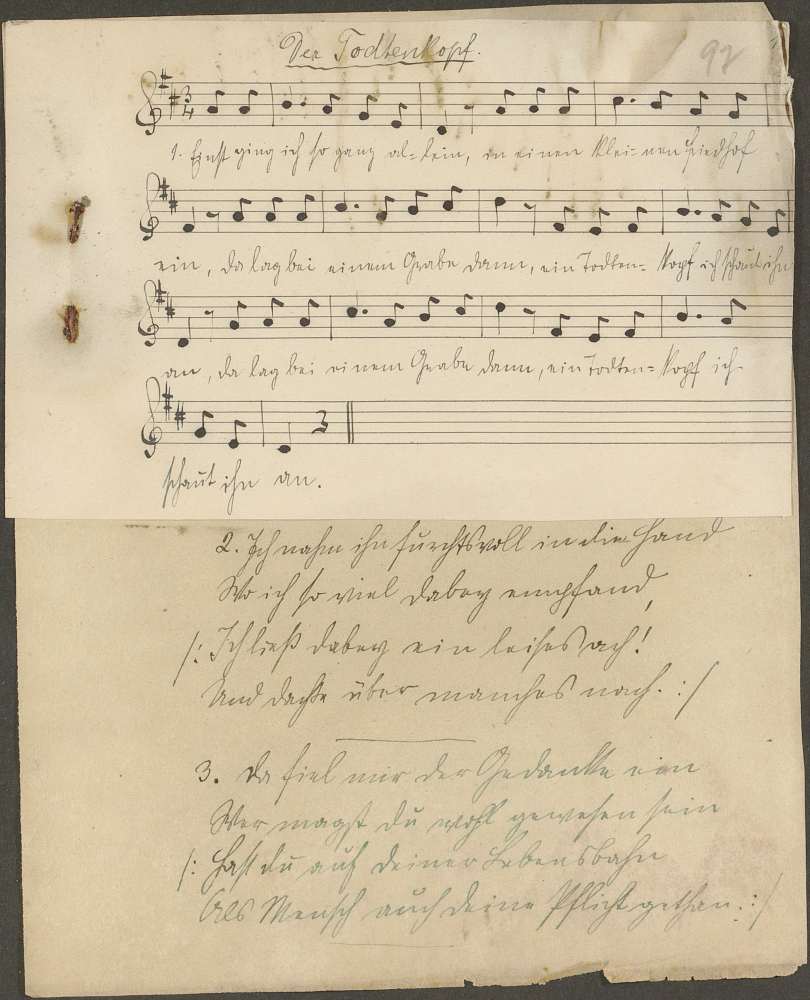 Der Todtenkopf.
92
1. Einst ging ich so ganz al=lein, in einen klei=nen Friedhof
ein, da lag bei einem Grabe dann, ein Todten= kopf ich schaut ihn
an, da lag bei einem Grabe dann, ein Todten= kopf ich
schaut ihn an.
2. Ich nahm ihn furchtsvoll in die Hand
Wo ich so viel dabey empfand,
/: Ich ließ dabey ein leises ach!
Und dachte über manches nach. :/
3. Da fiel mir der Gedanke ein
Wer magst du wohl gewesen sein
/: Hast du auf deiner Lebensbahn
Als Mensch auch deine Pflicht gethan. :/